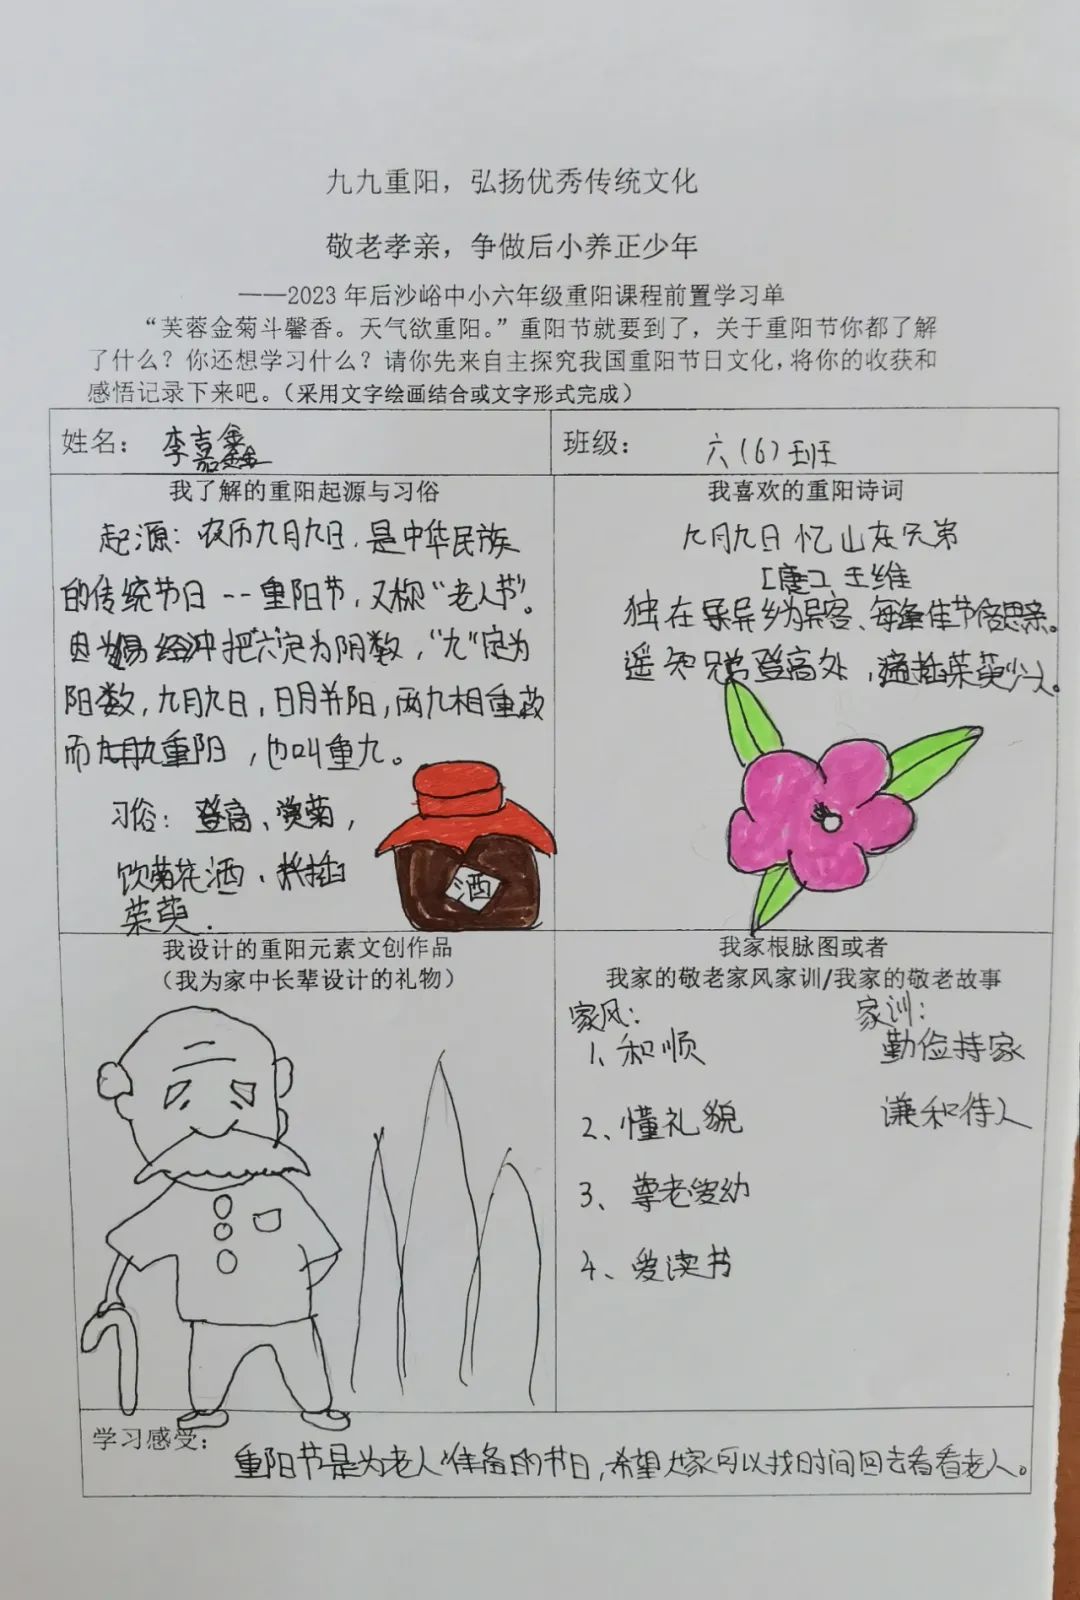 九九重阳，弘扬优秀传统文化
敬老孝亲，争做后小养正少年
——2023年后沙峪中小六年级重阳课程前置学习单
“芙蓉金菊斗馨香。天气欲重阳。”重阳节就要到了，关于重阳节你都了解
了什么？你还想学习什么？请你先来自主探究我国重阳节日文化，将你的收获和
感悟记录下来吧。（采用文字绘画结合或文字形式完成）
姓名： 李嘉鑫
班级： 六（6）班
我了解的重阳起源与习俗
起源：农历九月九日，是中华民族
的传统节日--重阳节，又称“老人节”。
因为易经中把“六”定为阴数，“九”定为
阳数，九月九日，日月并阳，两九相重故
而九月九重阳，也叫重九。
习俗：登高、赏菊，
饮菊花酒、插
茱萸.
酒
我喜欢的重阳诗词
九月九日忆山东兄弟
[唐]、王维
独在异乡为异客、每逢佳节倍思亲。
遥知兄弟登高处，遍插茱萸少人。
我设计的重阳元素文创作品
（我为家中长辈设计的礼物）
我家根脉图或者
我家的敬老家风家训/我家的敬老故事
家风：
1、和顺
2、懂礼貌
3、尊老爱幼
4、爱读书
家训：
勤俭持家
谦和待人
学习感受：重阳节是为老人准备的节日，希望大家可以找时间回去看看老人。